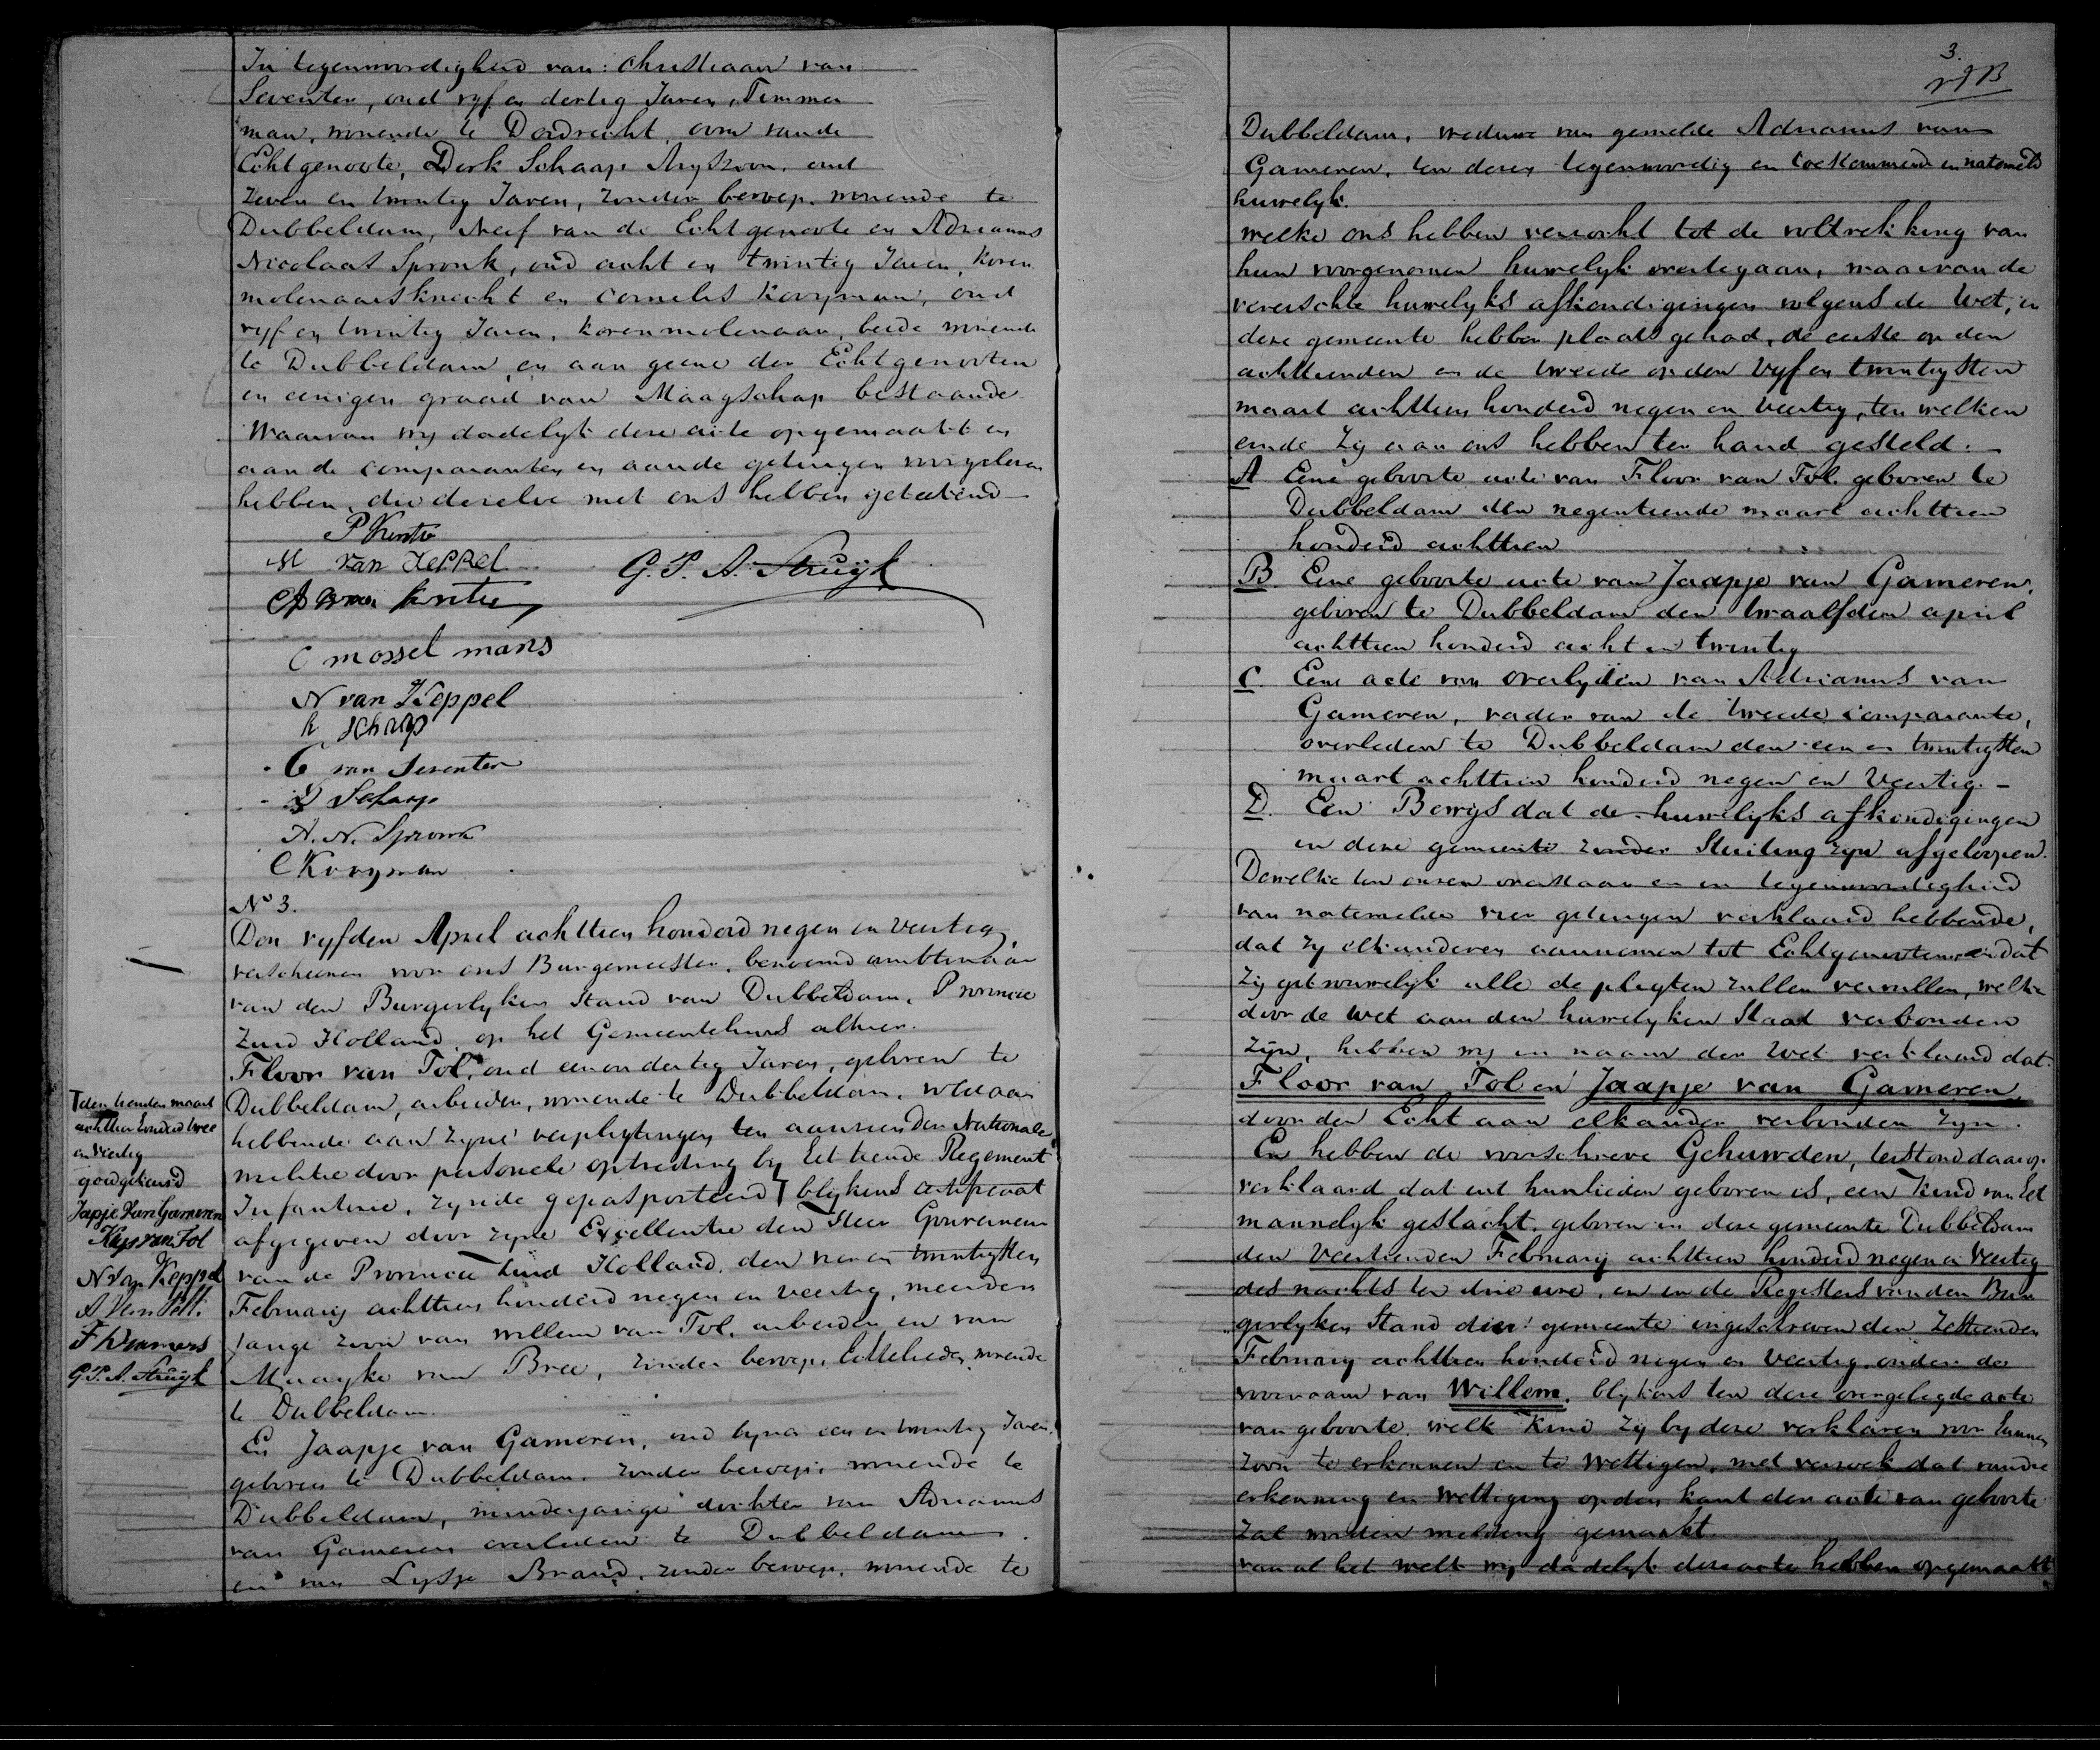 In tegenwoordigheid van: Christiaan van
Seventer, oud vyf en dertig Jaren, Timmer
man, wonende te Dordrecht, oom van de
Echtgenoote, Dirk Schaap Aryszoon, oud
zeven en twintig Jaren, zonder beroep, wonende te
Dubbeldam, Neef van de Echtgenoote en Adrianus
Nicolaas Spronk, oud acht en twintig Jaren, Koren
molenaarsknecht en Cornelis Kooyman, oud
vyf en twintig Jaren, korenmolenaar, beide wonende
te Dubbeldam en aan geene der Echtgenooten
in eenigen graad van Maagschap bestaande
Waarvan wy dadelyk deze acte opgemaakt en
aan de comparanten en aan de getuigen voorgelezen
hebben, die dezelve met ons hebben geteekend
M van Keppel
G. P. A. Struijk
C mossel mans
N van Keppel
h schaap
C van Seventer
D Schaap
A. N. Spronk
C Kooyman
No 3.
Den vyfden April achttien honderd negen en veertig,
verscheenen voor ons Burgemeester, benoemd ambtenaar
van den Burgerlyken Stand van Dubbeldam, Provincie
Zuid Holland, op het Gemeentehuis alhier.
Floor van Tol, oud een en dertig Jaren, geboren te
Dubbeldam, arbeider, wonende te Dubbeldam, voldaan
hebbende aan zyne verpligtingen ten aanzien der Nationale
militie door personele optreding by het tiende Regement
Infanterie, zynde gepasporteerd blykens certificaat
afgegeven door zyne Excellentie den Heer Gouverneur
van de Provincie Zuid Holland, den en twintigsten
February achttien honderd negen en veertig, meerder
jarige zoon van willem van Tol, arbeider en van
Maayke van Bree, zonder beroep, Echtelieden, wonende
te Dubbeldam.
En Jaapje van Gameren, oud byna een en twintig Jaren,
geboren te Dubbeldam, zonder beroep, wonende te
Dubbeldam, minderjarige dochter van Adrianus
van Gameren overleden te Dubbeldam
en van Lysje Brand, zonder beroep, wonende te
den tienden maart
achttien honderd twee
en veertig
goedgekeurd
Japje Van Gameren
N van Keppel
G. P. A. Struijk
3.
Dubbeldam, weduwe van gemelde Adrianus van
Gameren, ten dezen tegenwoordig en toestemmende in natemeld
huwelyk.
welke ons hebben verzocht tot de voltrekking van
hun voorgenomen huwelyk overtegaan, waarvan de
vereischte huwelyks afkondigingen volgens de Wet, in
deze gemeente hebben plaats gehad, de eerste op den
achttienden en de tweede op den Vyf en twintigsten
maart achttien honderd negen en Veertig, ten welken
einde zy aan ons hebben ter hand gesteld.
A Eene geboorte acte van Floor van Tol, geboren te
Dubbeldam den negentiende maart achttien
honderd achttien
B. Eene geboorte acte van Jaapje van Gameren,
geboren te Dubbeldam den twaalfden april
achttien honderd acht en twintig
C. Eene acte van overlyden van Adrianus van
Gameren, vader van de tweede comparante,
overleden te Dubbeldam den een en twintigsten
maart achttien honderd negen en Veertig. -
D. Een Bewys dat de huwelyks afkondigingen
in deze gemeente zonder Stuiting zyn afgeloopen.
Dewelke ten onzen overstaan en in tegenwoordigheid
van natemelden vier getuigen verklaard hebbende,
dat zy elkanderen aannemen tot Echtgenooten, en dat
zy getrouwelyk alle de pligten zullen vervullen, welke
door de wet aan den huwelyken Staat verbonden
zyn, hebben wy in naam der Wet verklaard dat
Floor van Tol en Jaapje van Gameren,
door den Echt aan elkander verbonden zyn.
En hebben de voorschreve Gehuwden, terstond daarop
verklaard dat uit hunlieden geboren is, een Kind van het
mannelyk geslacht, geboren in deze gemeente Dubbeldam
den Veertienden February achttien honderd negen en Veertig
des nachts ten drie ure, en in de Registers van den Bur
gerlyken Stand dier gemeente ingeschreven den Zestienden
February achttien honderd negen en Veertig onder de
voornaam van Willem, blykens ten deze overgelegde acte
van geboorte, welk Kind zy by deze verklaren voor hunnen
zoon te erkennen en te wettigen, met verzoek dat van die
erkenning en wettiging op den kant der acte van geboorte
zal worden melding gemaakt
van al het welk wy dadelyk deze acte hebben opgemaakt